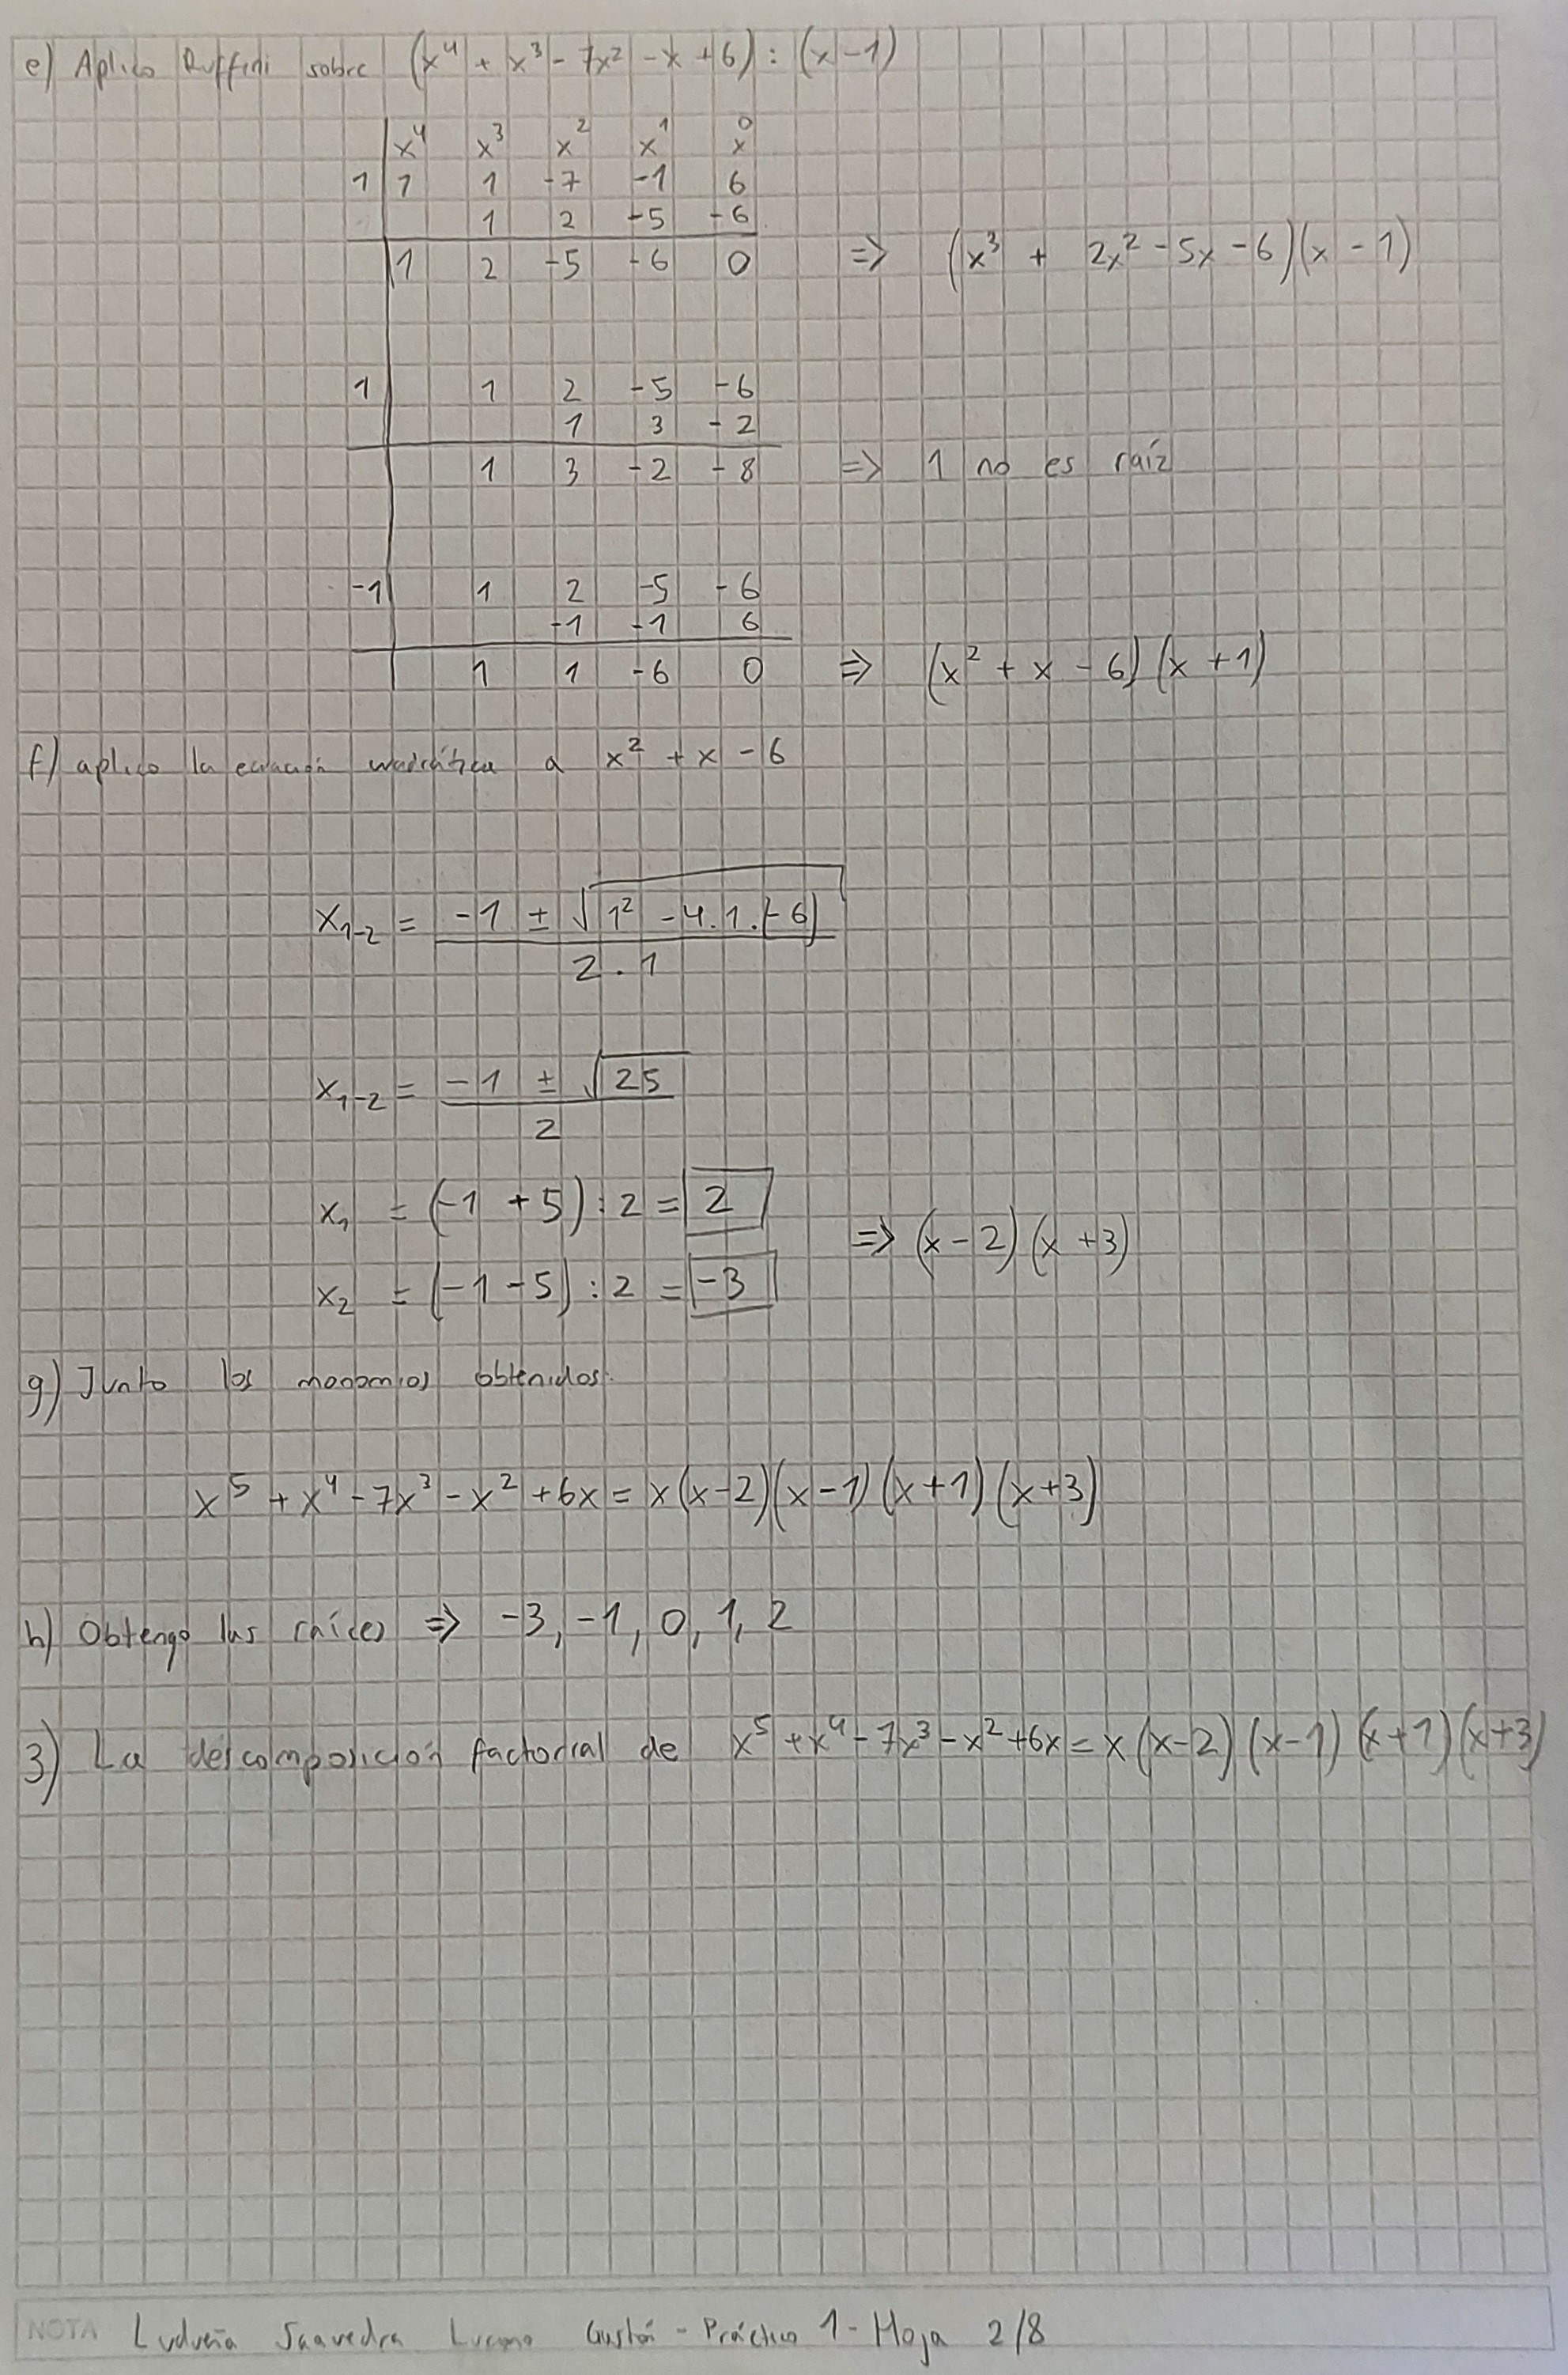 e) Aplico Ruffini sobre (x⁴ + x³ - 7x² - x + 6) : (x - 1)
x⁴ x³ x² x¹ x⁰
1 | 1 1 -7 -1 6
1 2 -5 -6
1 2 -5 -6 0 => (x³ + 2x² - 5x - 6)(x - 1)
1 | 1 2 -5 -6
1 3 -2
1 3 -2 -8 => 1 no es raíz
-1 | 1 2 -5 -6
-1 -1 6
1 1 -6 0 => (x² + x - 6)(x + 1)
f) aplico la ecuación cuadrática a x² + x - 6
x₁₋₂ = -1 ± √1² - 4.1.(-6)
2 . 1
x₁₋₂ = -1 ± √25
2
x₁ = (-1 + 5) : 2 = 2
=> (x - 2)(x + 3)
x₂ = (-1 - 5) : 2 = -3
g) Junto los monomios obtenidos.
x⁵ + x⁴ - 7x³ - x² + 6x = x(x-2)(x-1)(x+1)(x+3)
h) Obtengo las raíces => -3, -1, 0, 1, 2
3) La descomposición factorial de x⁵ + x⁴ - 7x³ - x² + 6x = x(x-2)(x-1)(x+1)(x+3)
NOTA Ludueña Saavedra Luciano Gastón - Práctico 1 - Hoja 2/8